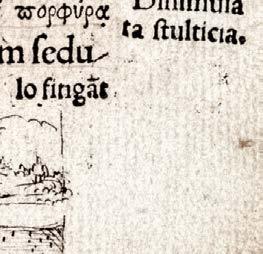 πορφύρα
m ſedu
lo fingāt
Diminuta
ta ſtulticia.